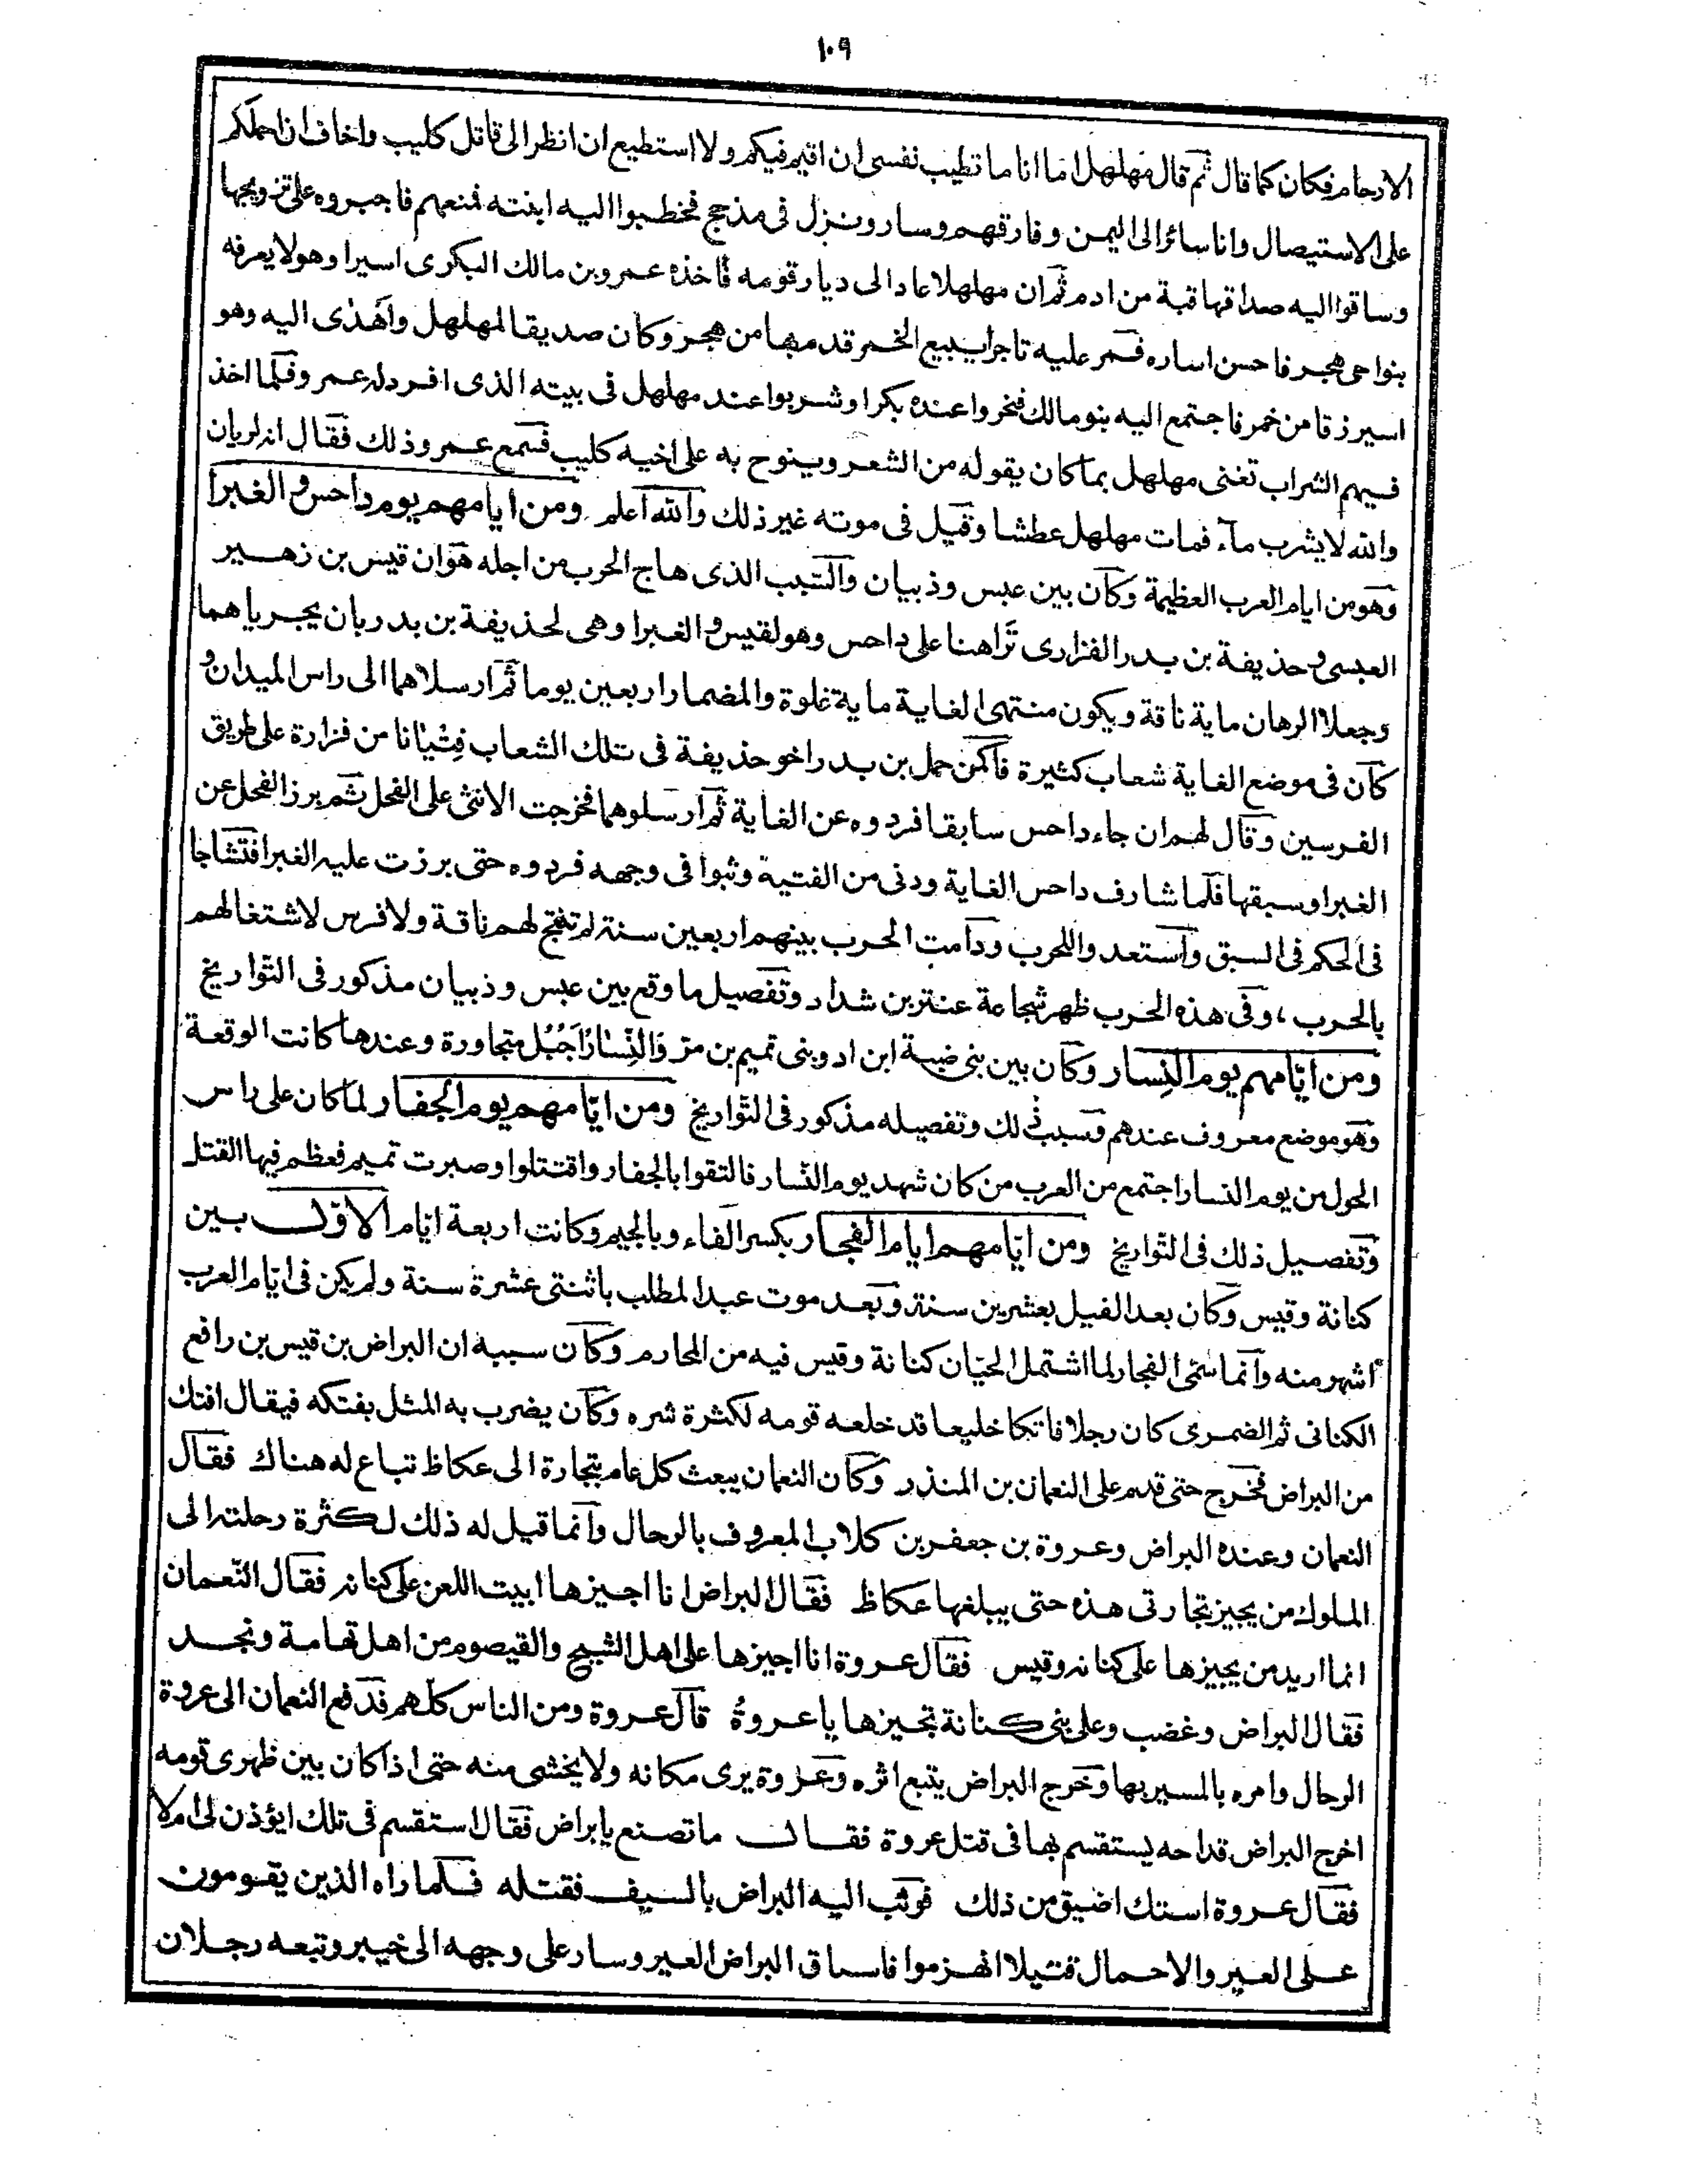 ١٠٩
الارحام فكان كما قال ثم قال مهلهل اما انا ما تطيب نفسى ان اقيم فيكم ولا استطيع ان انظر الى قاتل كليب واخاف ان احملكم
على الاستيصال وانا سائر الى اليمن وفارقهم وسار ونزل فى مذحج فخطبوا اليه ابنته فمنعهم فاجبروه على تزويجها
وساقوا اليه صداقها قبة من ادم ثم ان مهلهلا عاد الى ديار قومه فاخذه عمرو بن مالك البكرى اسيرا وهو لا يعرفه
بنواحى هجر فاحسن اساره فمر عليه تاجر يبيع الخمر قدم بها من هجر وكان صديقا لمهلهل واهدى اليه وهو
اسير زقا من خمر فاجتمع اليه بنو مالك فنحروا عنده بكرا وشربوا عند مهلهل فى بيته الذى افرد له عمرو فلما اخذ
فيهم الشراب تغنى مهلهل بما كان يقوله من الشعر وينوح به على اخيه كليب فسمع عمرو ذلك فقال انه لريان
والله لا يشرب مآء فمات مهلهل عطشا وقيل فى موته غير ذلك والله اعلم ومن ايامهم يوم داحس و الغبرا
وهو من ايام العرب العظيمة وكان بين عبس وذبيان والسبب الذى هاج الحرب من اجله هو ان قيس بن زهير
العبسى و حذيفة بن بدر الفزارى تراهنا على داحس وهو لقيس و الغبرا وهى لحذيفة بن بدر بان يجرياهما
وجعلا الرهان ماية ناقة ويكون منتهى الغاية ماية غلوة والمضمار اربعين يوما ثم ارسلاهما الى راس الميدان و
كان فى موضع الغاية شعاب كثيرة فاكمن حمل بن بدر اخو حذيفة فى تلك الشعاب فتيانا من فزارة على طريق
الفرسين وقال لهم ان جاء داحس سابقا فردوه عن الغاية ثم ارسلوهما فخرجت الانثى على الفحل ثم برز الفحل عن
الغبرا وسبقها فلما شارف داحس الغاية ودنى من الفتية وثبوا فى وجهه فردوه حتى برزت عليه الغبرا فتشاجا
فى الحكم فى السبق واستعدوا للحرب ودامت الحرب بينهم اربعين سنة لم تنتج لهم ناقة ولا فرس لاشتغالهم
بالحرب ، وفى هذه الحرب ظهر شجاعة عنتر بن شداد وتفصيل ما وقع بين عبس وذبيان مذكور فى التواريخ
ومن ايّامهم يوم النِسار وكان بين بنى ضبة ابن اد وبنى تميم بن مرّ والنِّسارُ اَجبُل متجاورة وعندها كانت الوقعة
وهو موضع معروف عندهم وسبب ذلك وتفصيله مذكور فى التّواريخ ومن ايّامهم يوم الجفار لما كان على راس
الحول من يوم النسار اجتمع من العرب من كان شهد يوم النّسار فالتقوا بالجفار واقتتلوا وصبرت تميم فعظم فيها القتل
وتفصيل ذلك فى التّواريخ ومن ايّامهم ايام الفجار بكسر الفاء وبالجيم وكانت اربعة ايّام الاوّل بين
كنانة وقيس وكان بعد الفيل بعشرين سنة وبعد موت عبد المطلب باثنتى عشرة سنة ولم يكن فى ايّام العرب
اشهر منه وانما سمّى الفجار لما اشتمل الحيّان كنانة وقيس فيه من المحارم وكان سببه ان البراض بن قيس بن رافع
الكنانى ثم الضمرى كان رجلا فاتكا خليعا قد خلعه قومه لكثرة شره وكان يضرب به المثل بفتكه فيقال افتك
من البراض فخرج حتى قدم على النعمان بن المنذر وكان النعمان يبعث كل عام بتجارة الى عكاظ تباع له هناك فقال
النعمان وعنده البراض وعروة بن جعفر بن كلاب المعروف بالرحال وانما قيل له ذلك لكثرة رحلته الى
الملوك من يجيز تجارتى هذه حتى يبلغها عكاظ فقال البراض انا اجيزها ابيت اللعن على كنانه فقال النّعمان
انما اريد من يجيزها على كنانه وقيس فقال عروة انا اجيزها على اهل الشيح والقيصوم من اهل تهامة ونجد
فقال البراض وغضب وعلى بنى كنانة تجيزها يا عروةُ قال عروة ومن الناس كلهم فدفع النعمان الى عروة
الرحال وامره بالمسير بها وخرج البراض يتبع اثره وعروة يرى مكانه ولا يخشى منه حتى اذا كان بين ظهرى قومه
اخرج البراض قداحه يستقسم بها فى قتل عروة فقال ما تصنع يا براض فقال استقسم فى تلك ايؤذن لى ام لا
فقال عروة استك اضيق من ذلك فوثب اليه البراض بالسيف فقتله فلما راه الذين يقومون
على العير والاحمال قتيلا انهزموا فاساق البراض العير وسار على وجهه الى خيبر وتبعه رجلان